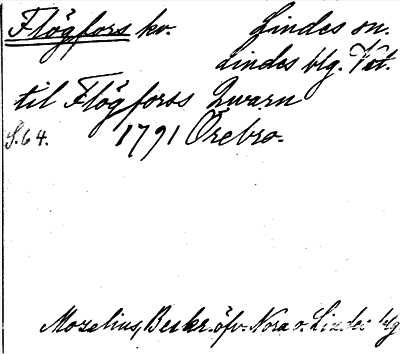 Flögfors kv. Lindes sn.
Lindes blg. Vstm.
til Flögfors Qvarn
S.64. 1791 Örebro.
Mozelius, Beskr. öfv. Nora o. Lindes blg